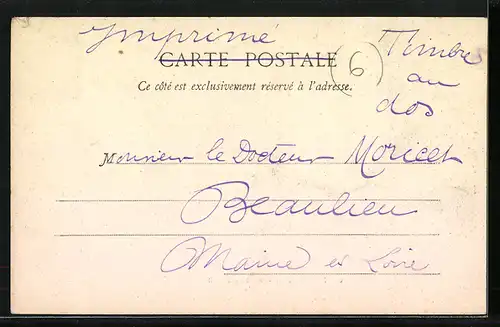 Imprimé
CARTE POSTALE
6
Timbre
au
dos
Ce côté est exclusivement réservé à l'adresse.
Monsieur le Docteur Moricet
Beaulieu
Maine et Loire